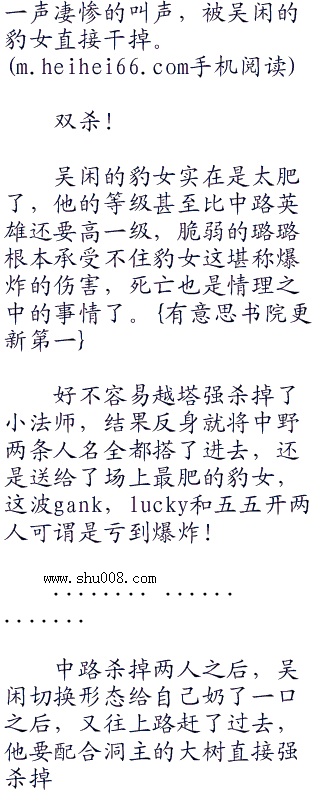 一声凄惨的叫声，被吴闲的
豹女直接干掉。
(m.heihei66.com手机阅读)
双杀！
吴闲的豹女实在是太肥
了，他的等级甚至比中路英
雄还要高一级，脆弱的璐璐
根本承受不住豹女这堪称爆
炸的伤害，死亡也是情理之
中的事情了。{有意思书院更
新第一}
好不容易越塔强杀掉了
小法师，结果反身就将中野
两条人名全都搭了进去，还
是送给了场上最肥的豹女，
这波gank，lucky和五五开两
人可谓是亏到爆炸！
www.shu008.com
........ ......
.......
中路杀掉两人之后，吴
闲切换形态给自己奶了一口
之后，又往上路赶了过去，
他要配合洞主的大树直接强
杀掉